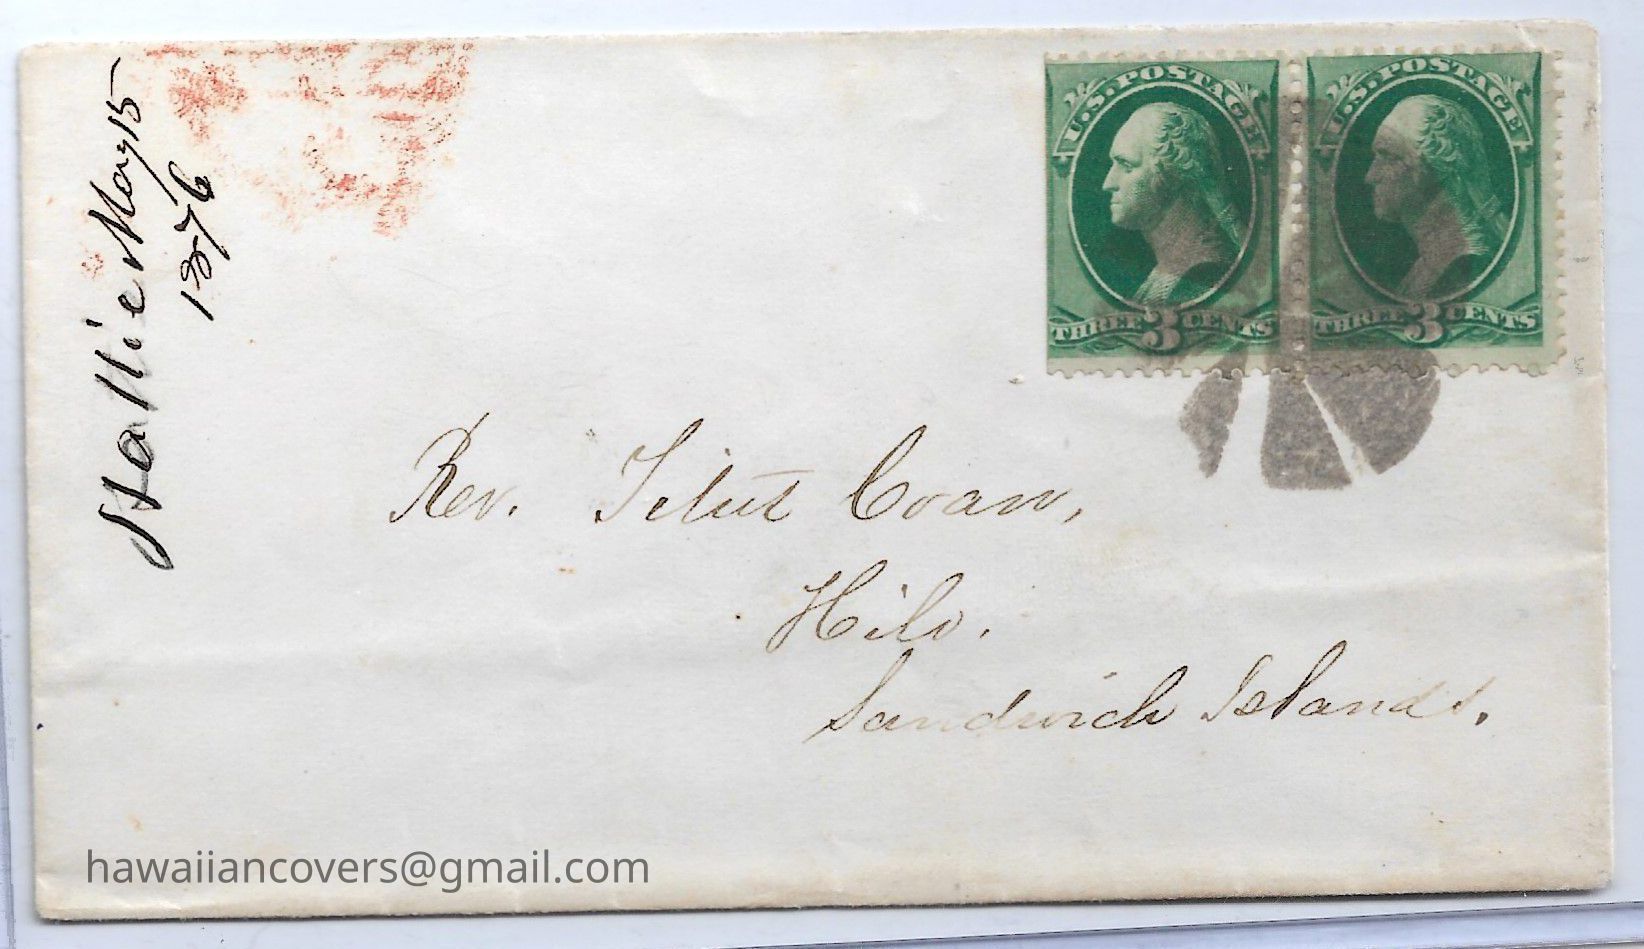 Hallie May 15
1876
U.S. POSTAGE
THREE 3 CENTS
U.S. POSTAGE
THREE 3 CENTS
Rev. Titus Coan,
Hilo.
Sandwich Islands.
hawaiiancovers@gmail.com